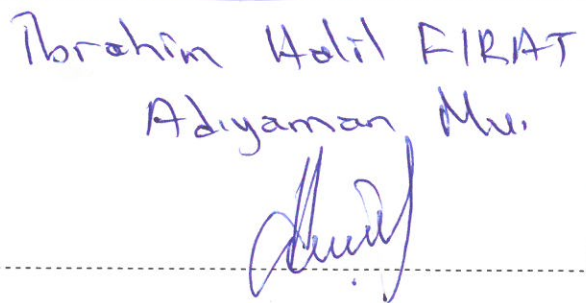 İbrahim Halil FIRAT
Adıyaman Mv.